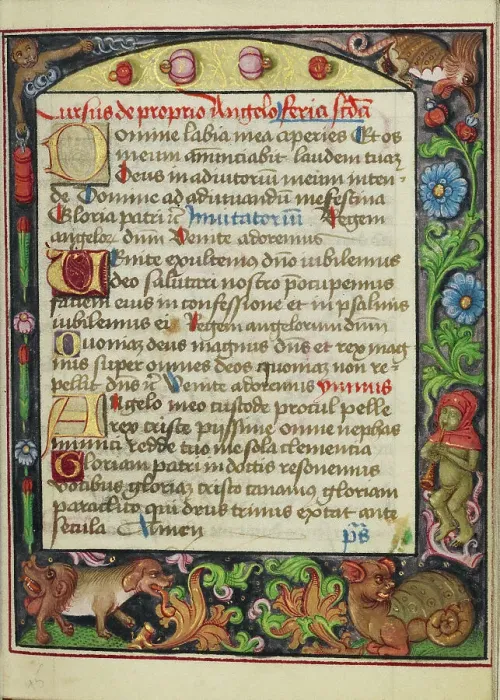 Cursus de proprio Angelo feria scda
Domine labia mea aperies Et os
meum annunciabit laudem tuaz
Deus in adiutorium meum inten-
de Domine ad adiuuandū me festina
Gloria patri ic Inuitatoriū Regem
angeloz dnm Venite adoremus
Venite exultemo dno iubilemus
deo salutari nostro pocupemus
faciem eius in confessione et in psalmis
iubilemus ei Regem angelorum dnm
Quoniaz deus magnus dns et rex mag
nus super omnes deos quoniaz non re-
pellit dns ic Venite adoremus ymnus
Angelo meo custode procul pelle
rex criste pijssime omne nephas
munda redde tuo me sola clementia
Gloriam patri in doctis resonemus
vocibus gloriaz cristo canamus gloriam
paraclito qui deus trinus extat ante
secula Amen ps